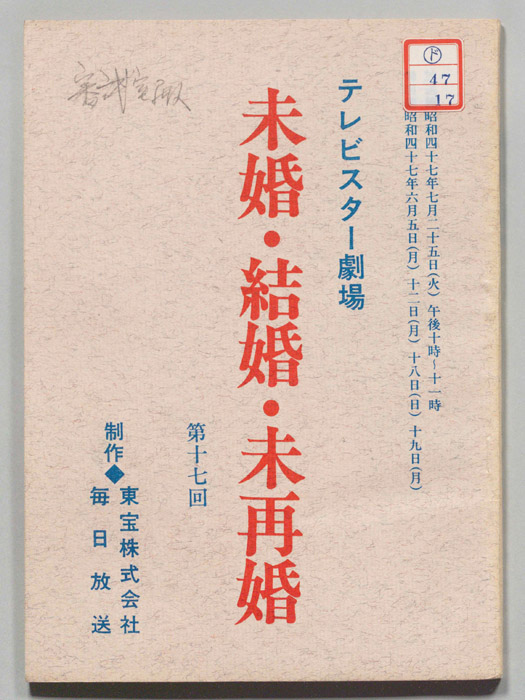 ド
47
17
昭和四十七年七月二十五日(火) 午後十時~十一時
昭和四十七年六月五日(月) 十二日(月) 十八日(日) 十九日(月)
テレビスター劇場
未婚・結婚・未再婚
第十七回
制作◆東宝株式会社
毎日放送